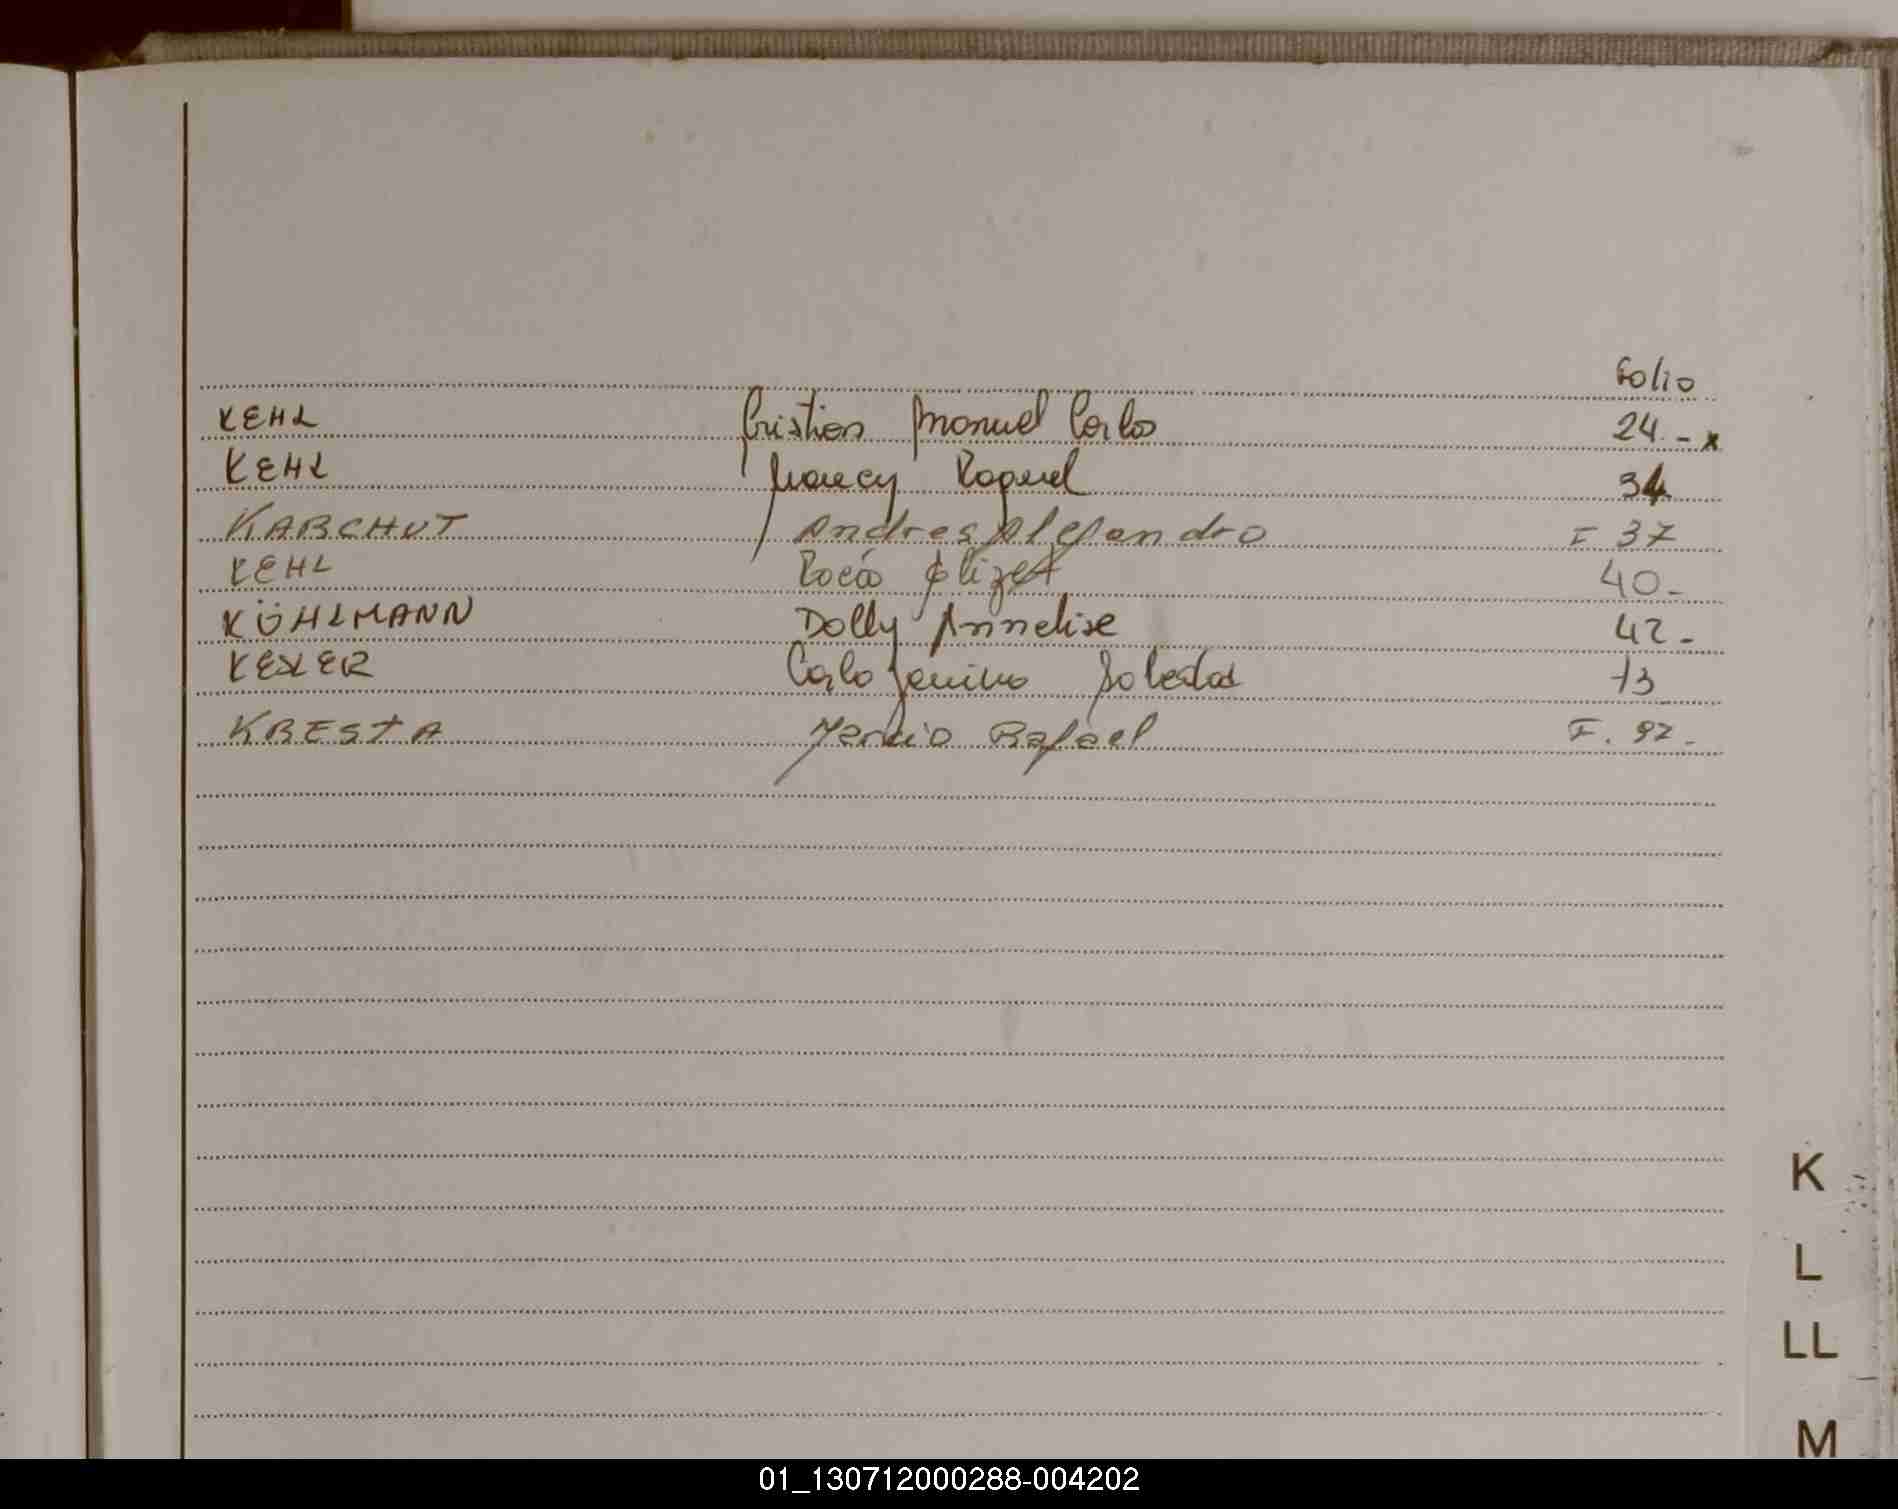 Folio
KEHL Cristian Manuel Carlos 24.- x
KEHL Nancy Raquel 34
KARCHUT Andres Alejandro F 37
KEHL Rocío 40-
KÜHLMANN Dolly Annelise 42-
KEXER Carla Janina Soledad 73
KRESTA Sergio Rafael F. 92.-
K
L
LL
M
01_130712000288-004202